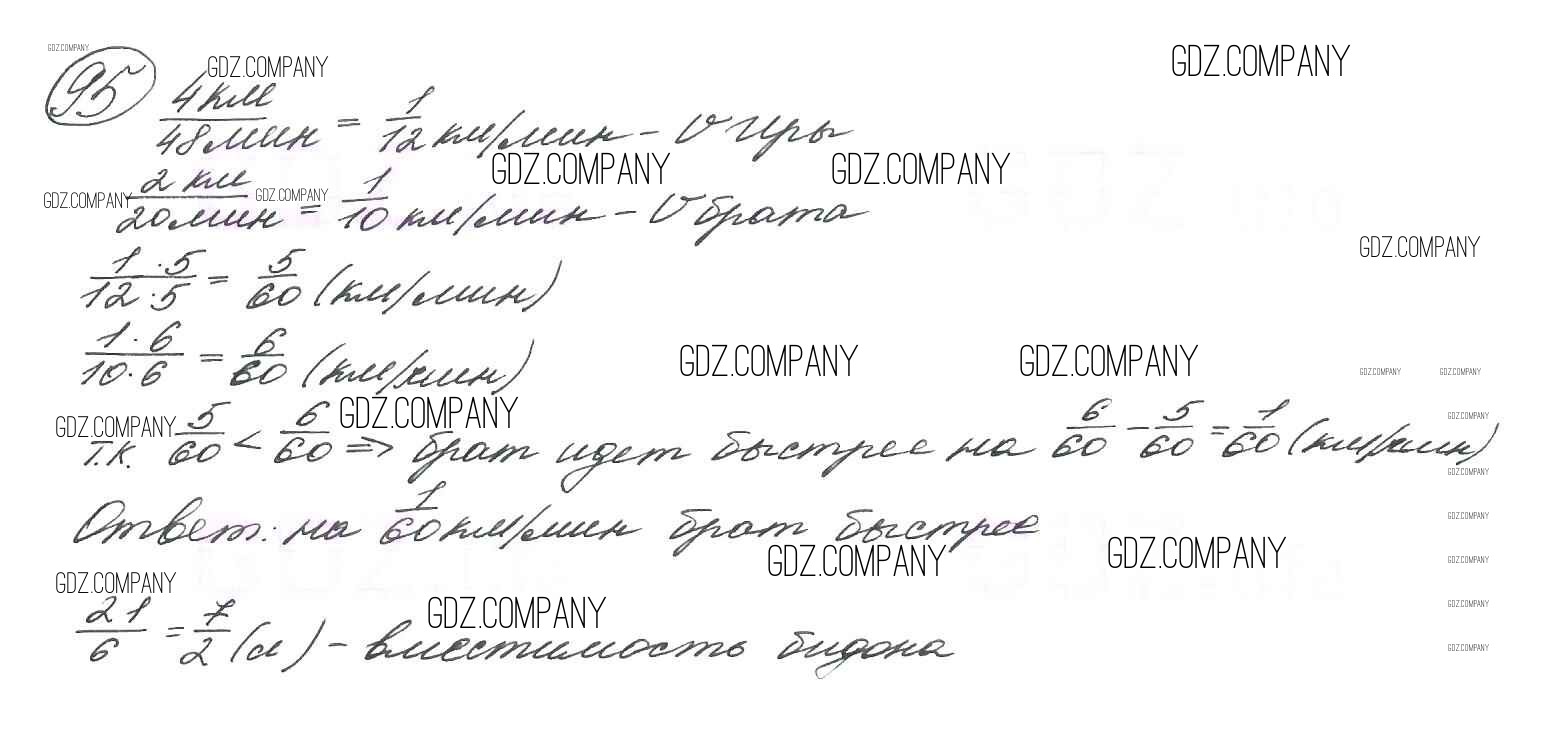 GDZ.COMPANY
95 GDZ.COMPANY GDZ.COMPANY
4км/48мин = 1/12 км/мин - V Иры
GDZ.COMPANY GDZ.COMPANY
GDZ.COMPANY 2 км/20мин GDZ.COMPANY = 1/10 км/мин - V брата
GDZ.COMPANY
1·5/12·5 = 5/60 (км/мин)
1·6/10·6 = 6/60 (км/мин)
GDZ.COMPANY GDZ.COMPANY GDZ.COMPANY GDZ.COMPANY
GDZ.COMPANY GDZ.COMPANY GDZ.COMPANY
т.к. 5/60 < 6/60 => брат идет быстрее на 6/60 - 5/60 = 1/60 (км/мин)
GDZ.COMPANY
Ответ: на 1/60 км/мин брат быстрее
GDZ.COMPANY
GDZ.COMPANY GDZ.COMPANY GDZ.COMPANY
GDZ.COMPANY GDZ.COMPANY GDZ.COMPANY
21/6 = 7/2 (л) - вместимость бидона
GDZ.COMPANY